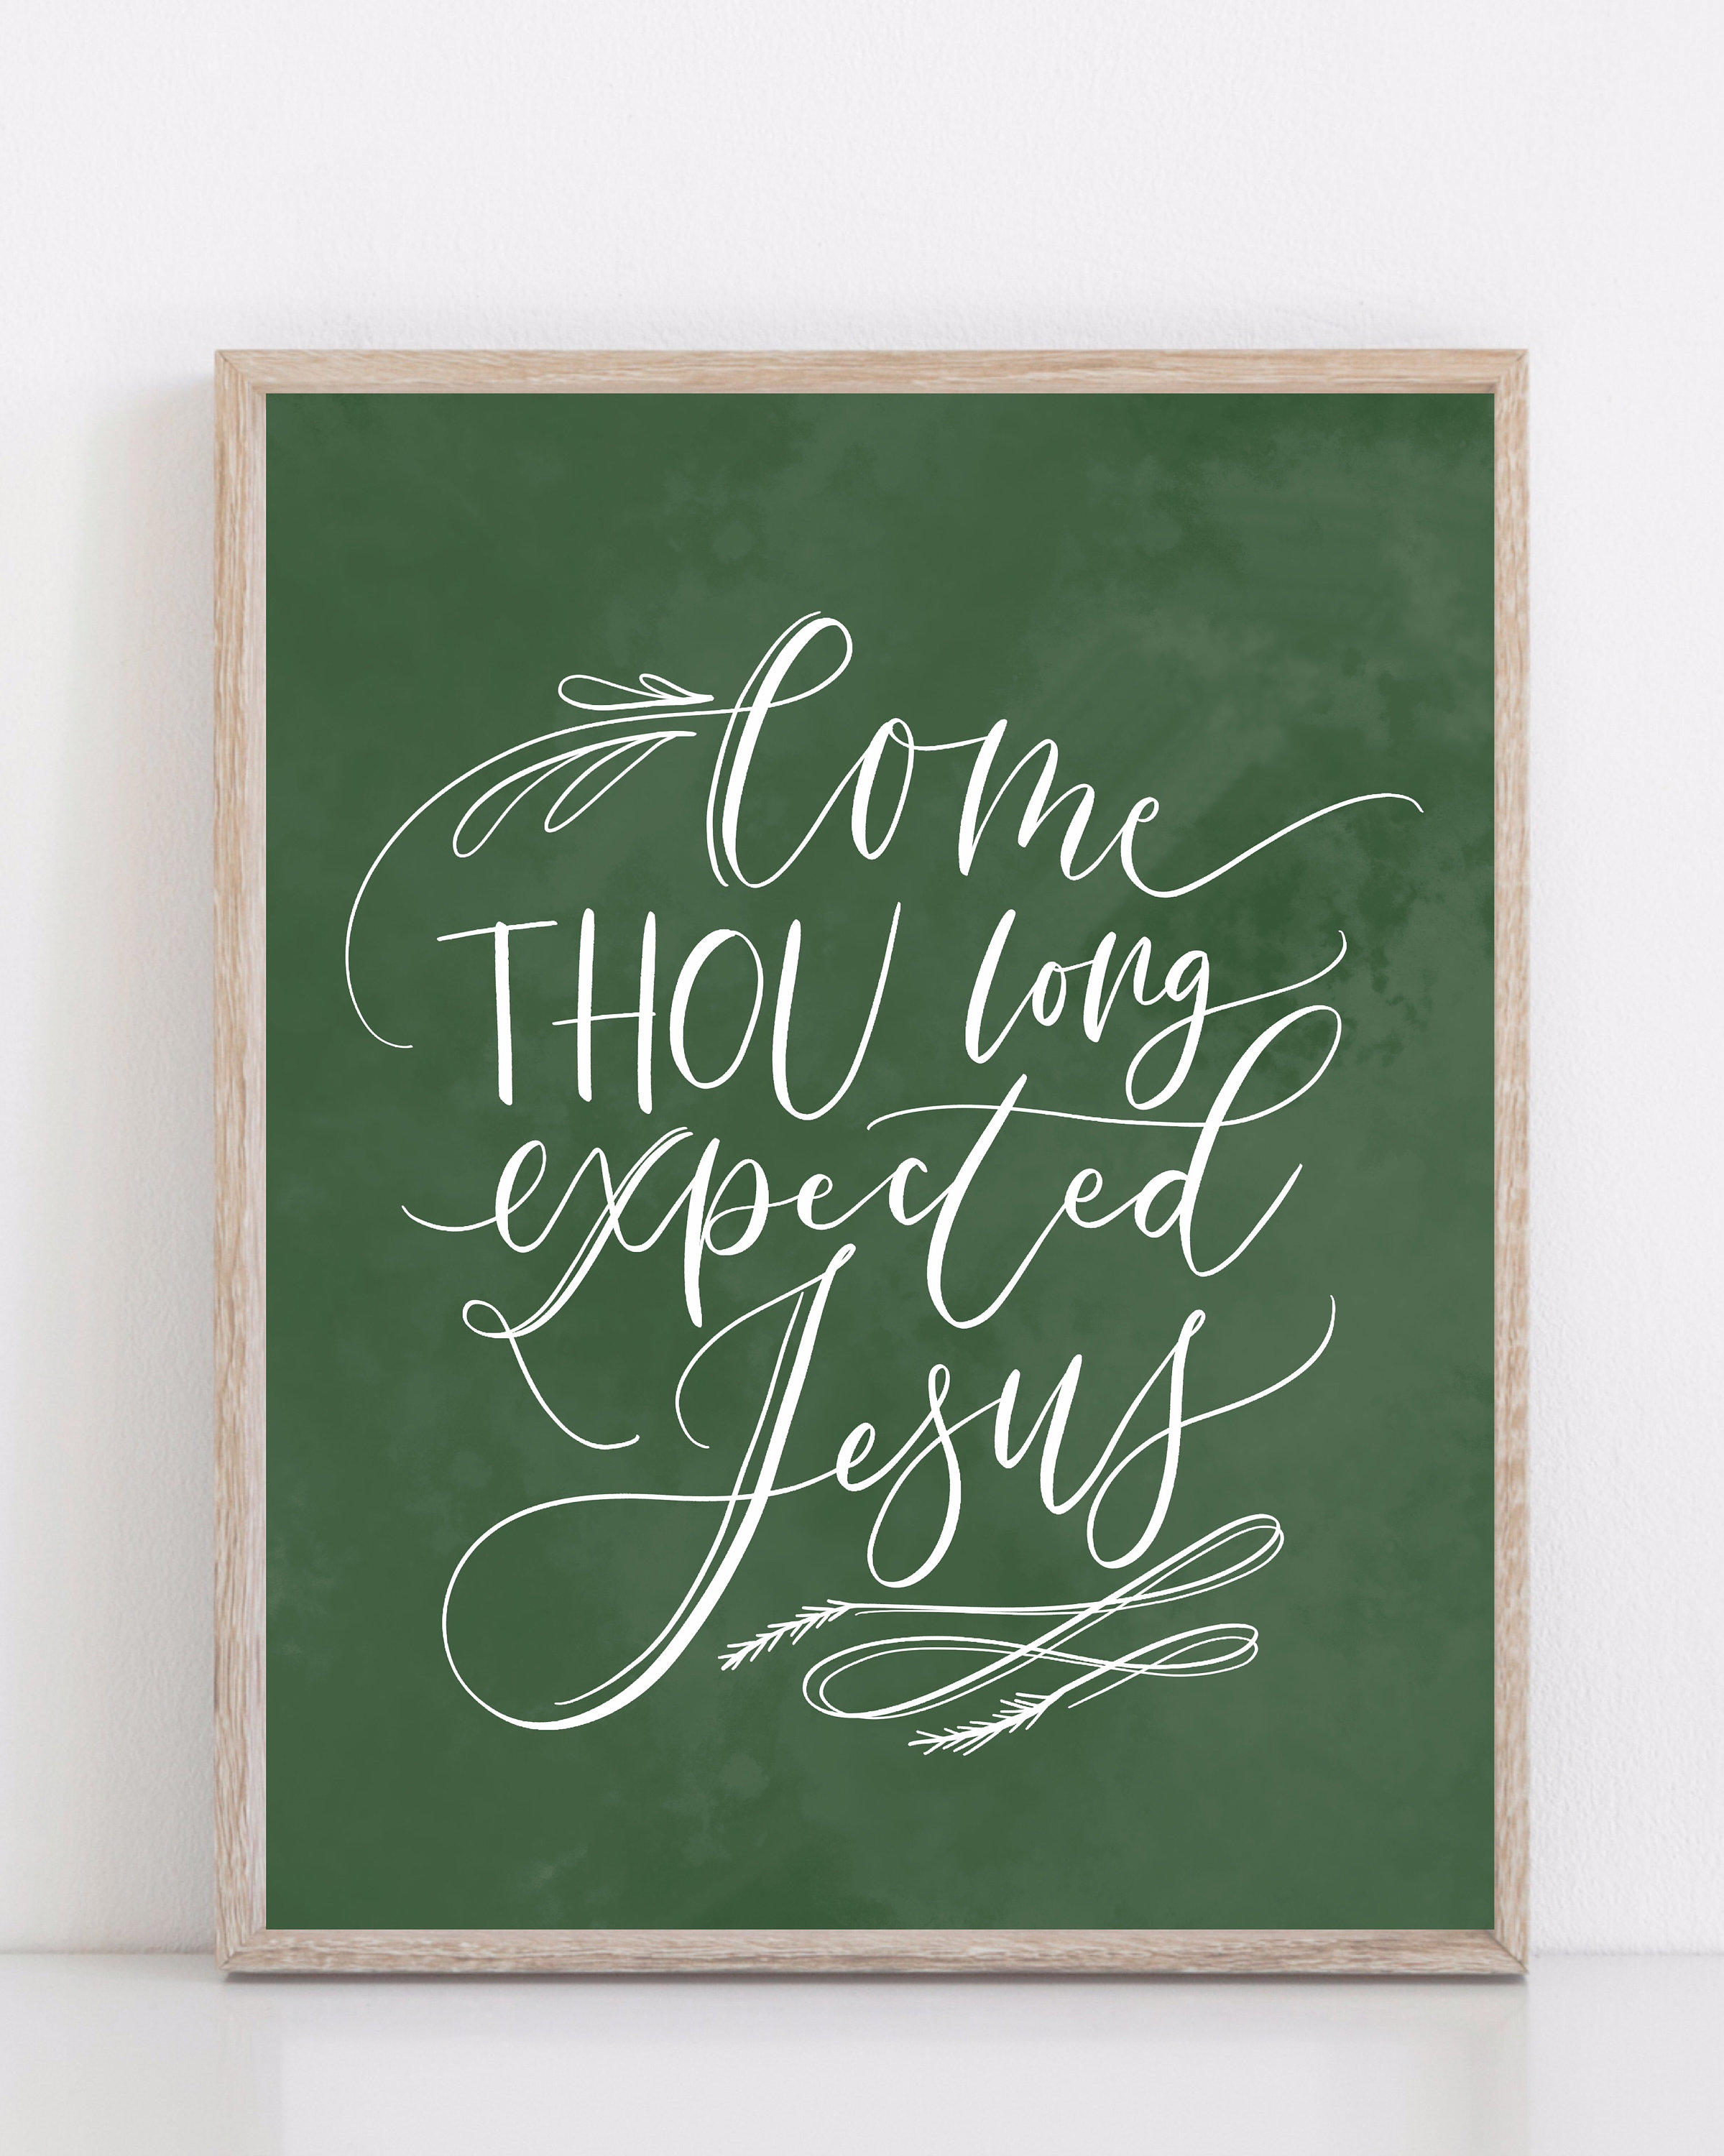 Come
THOU long
expected
Jesus